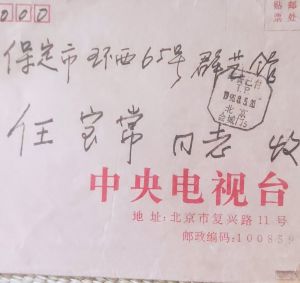 000
贴邮
票处
保定市环西65号群艺馆
T.P.
北京
任宝常同志收
中央电视台
地址:北京市复兴路11号
邮政编码:100859